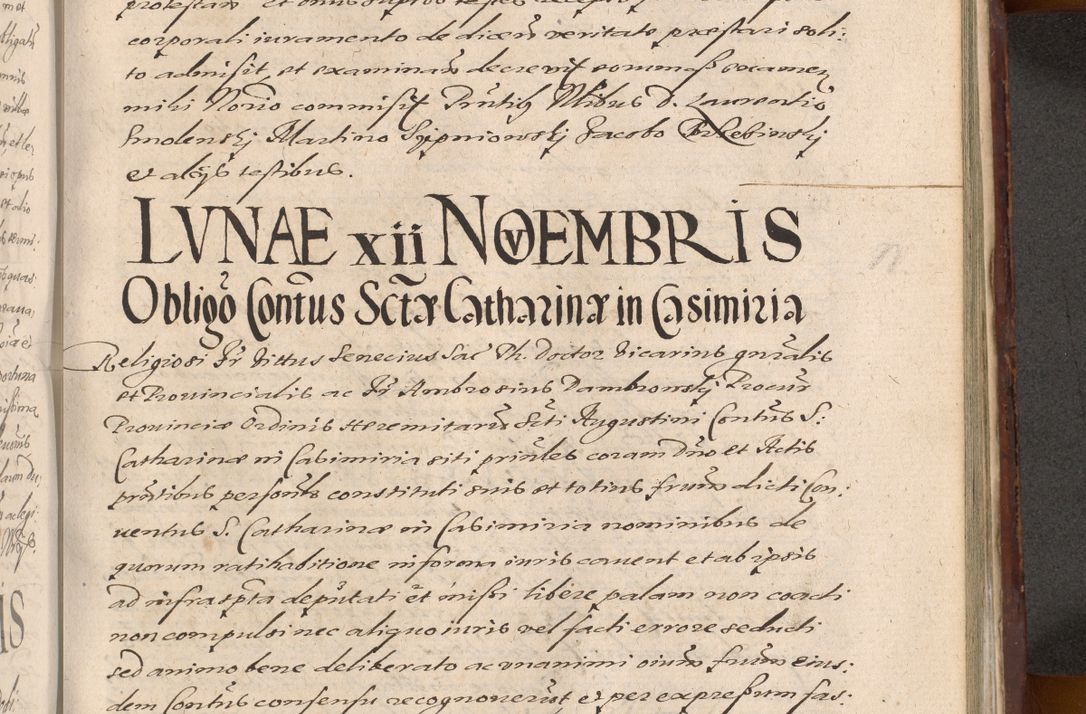 corporali iuramento de dicenᵈ veritate præstari soli:
to admisit, et examinanᵈ decrevit eorumqꝫ examen
mihi Norio commisit Pntibꝫ Nlibus D. Laurentio
Smolenskj Martino Sypniowskj Jacobo Trzebinskj
et alijs testibus.
LVNAE xii NOVEMBRIS
Obligo Contus Sctæ Catharinæ in Casimiria
Religiosi Fr Vittus Senecius Sac Th. Doctor Vicarius gnralis
et Provincialis ac Fr Ambrosius Dambrowskj Procur
Provinciæ Ordinis Heremitarum Scti Augustini Contus S.
Catharinæ in Casimiria siti prinles coram Dno et Actis
pntibus personlr constituti suis et totius frum dicti Con:
ventus S. Catharinæ in Casimiria nominibus de
quorum ratihabitione in forma iuris cavent et ab ipsis
ad infrascpta deputati et missi libere palam non coacti
non compulsi nec aliquo iuris vel facti errore seducti
sed animo bene deliberato ac unanimi oium frum eius:
dem Contus consensu recognoverut et per expressum fas: